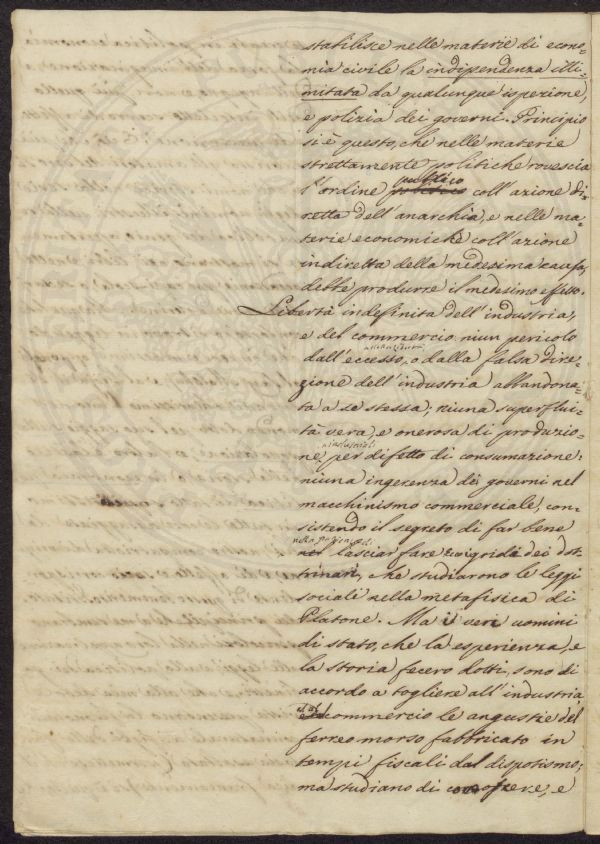 stabilisce nelle materie di econo=
mia civile la indipendenza illi=
mitata da qualunque ispezione,
e polizia dei governi. Principio
si è questo, che nelle materie
strettamente politiche rovescia
publico
l'ordine politico coll'azione di=
retta dell'anarchia, e nelle ma=
terie economiche coll'azione
indiretta della medesima causa,
debbe produrre il medesimo effetto.
Libertà indefinita dell'industria,
e del commercio: niun pericolo
dall'eccesso, o dalla falsa dire=
zione dell'industria abbandona=
ta a se stessa; niuna superflui=
tà vera, e onerosa di produzio=
industriali
ne, per difetto di consumazione:
niuna ingerenza dei governi nel
macchinismo commerciale, con=
sistendo il segreto di far bene
nel lasciar fare: grida dei dot=
trinari, che studiarono le leggi
sociali nella metafisica di
Platone. Ma i veri uomini
di stato, che la esperienza, e
la storia fecero dotti, sono di
accordo a togliere all'industria,
ed al
commercio le angustie del
ferreo morso fabbricato in
tempi fiscali dal dispotismo;
ma studiano di conoscere, e